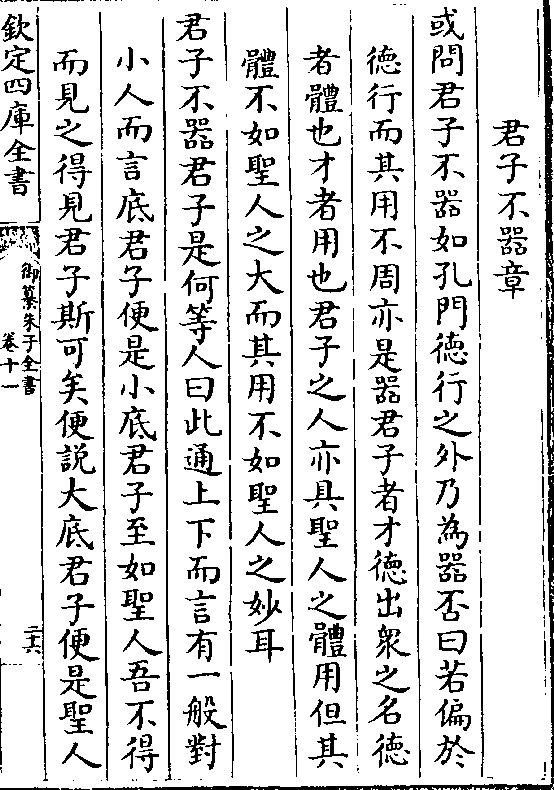 君子不器章
或問君子不器如孔門德行之外乃為器否曰若偏於
德行而其用不周亦是器君子者才德出衆之名德
者體也才者用也君子之人亦具聖人之體用但其
體不如聖人之大而其用不如聖人之妙耳
君子不器君子是何等人曰此通上下而言有一般對
小人而言底君子便是小底君子至如聖人吾不得
而見之得見君子斯可矣便説大底君子便是聖人
欽定四庫全書
御纂朱子全書
卷十一
二十六